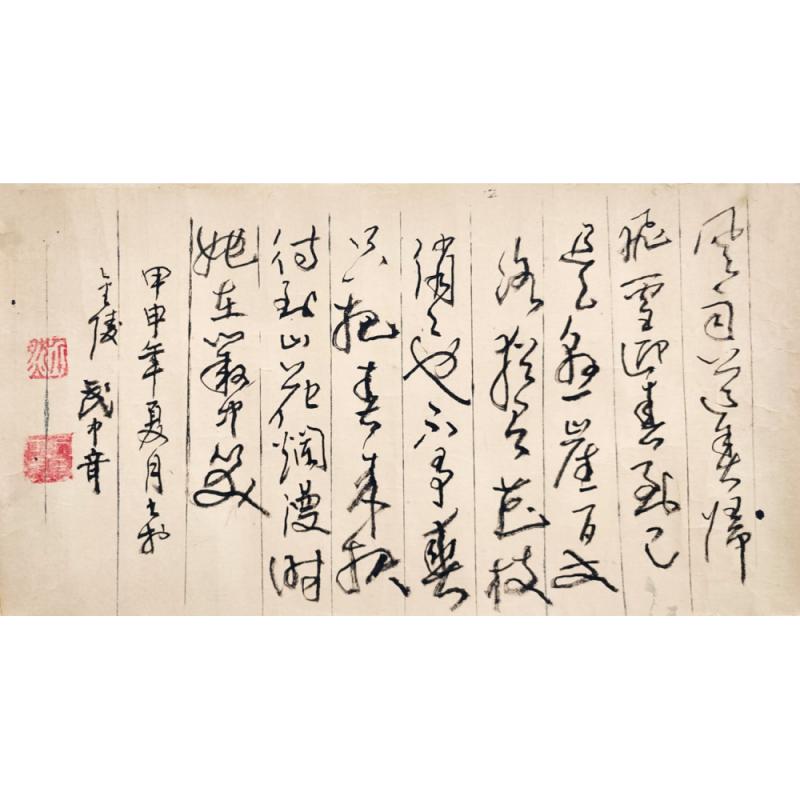 风雨送春歸
飛雪迎春到已
是懸崖百丈
冰猶有花枝
俏俏也不争春
只把春来报
待到山花爛漫时
她在叢中笑
甲申年夏月
金陵 武中奇